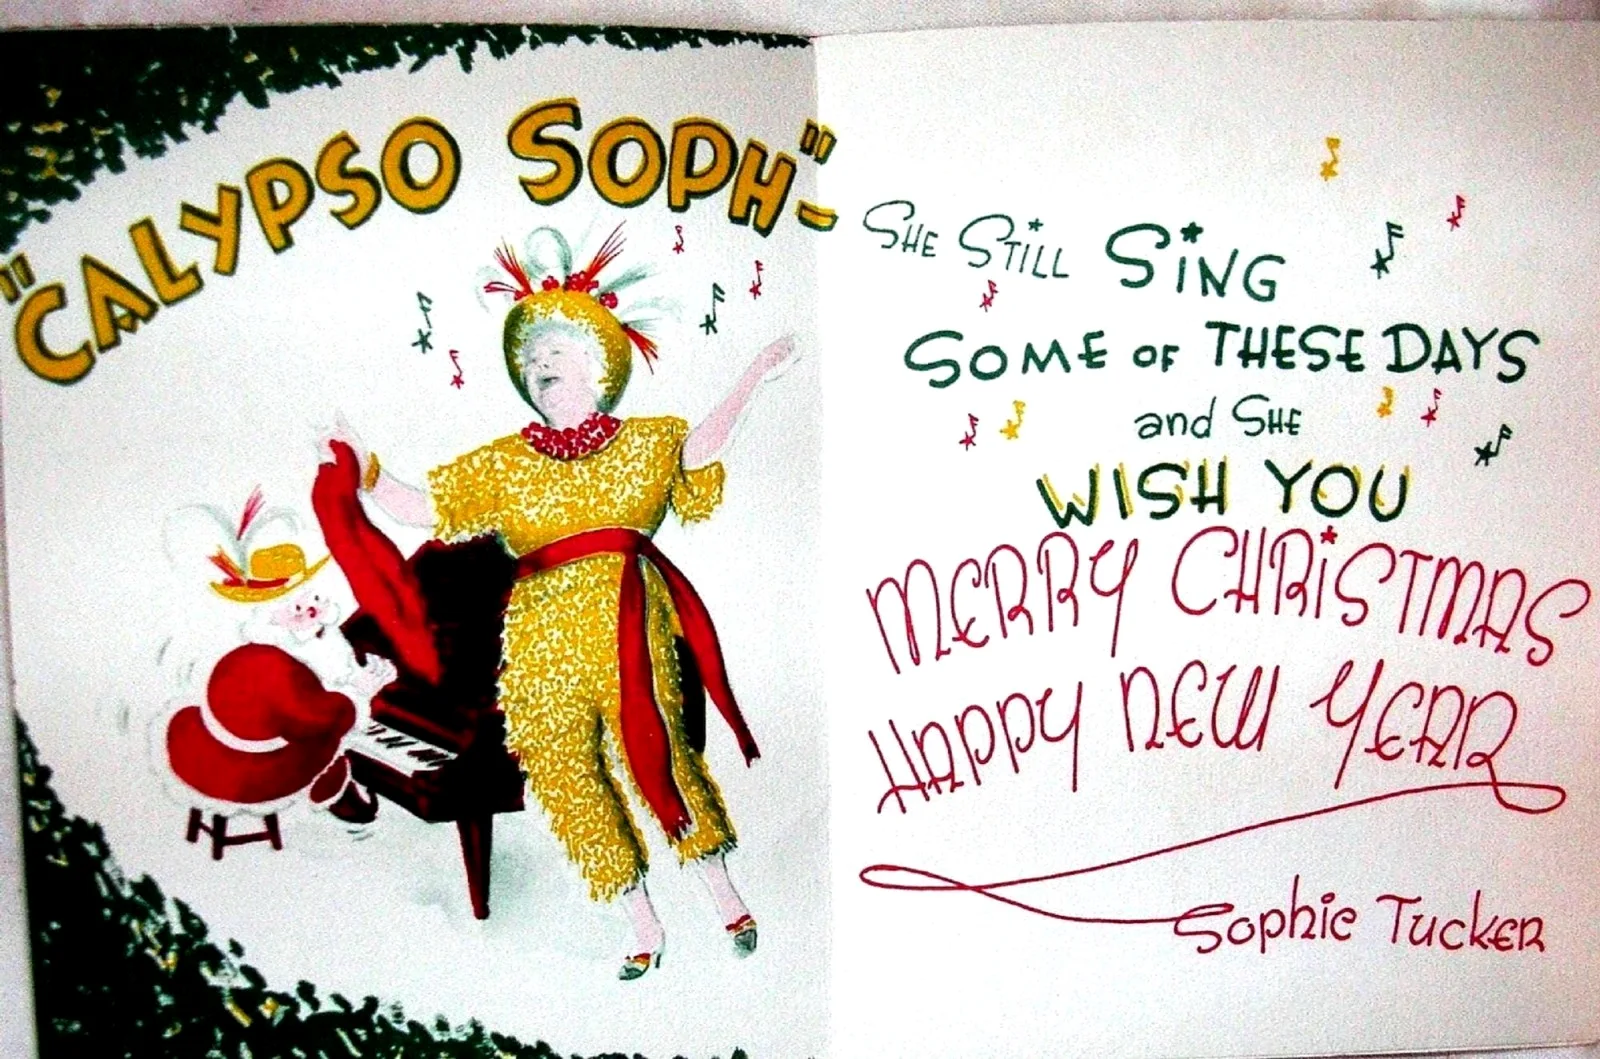 "CALYPSO SOPH"-
SHE STiLL SiNG
SOME OF THESE DAYS
and SHE
WISH YOU
MERRY CHRiSTMAS
HAPPY NEW YEAR
Sophie Tucker